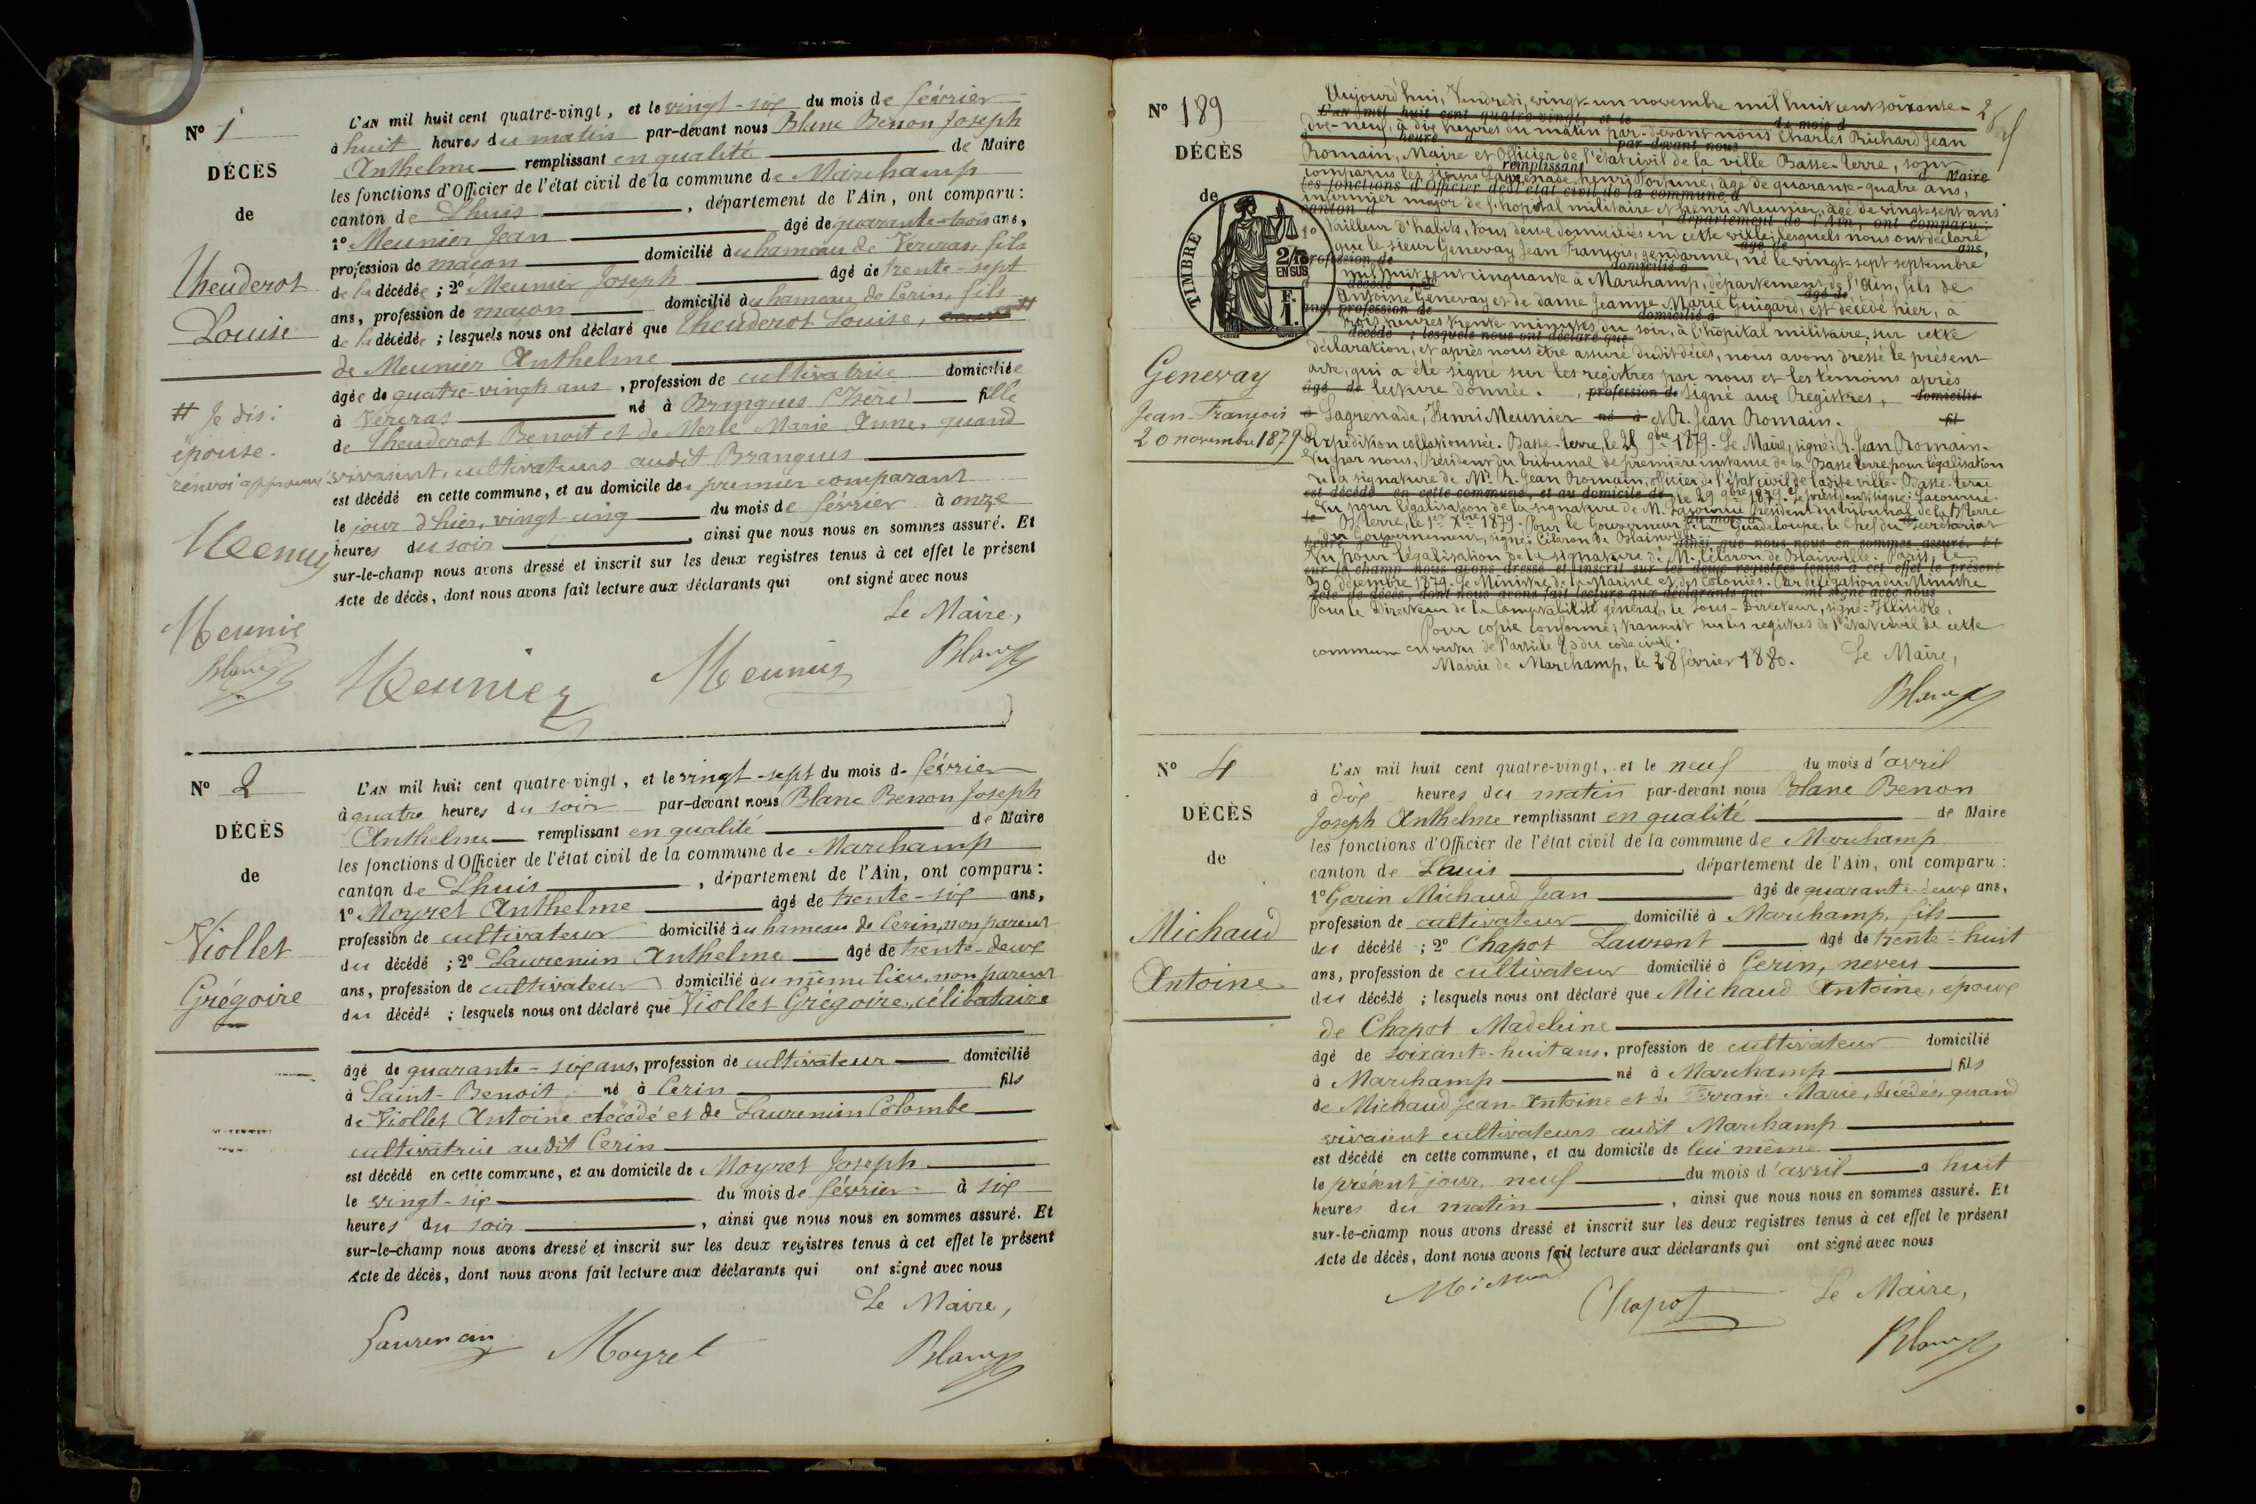 N° 1
DÉCÈS
de
Theuderot
Louise
# Je dis:
épouse.
renvoi approuvé
Meunie
Meunie
Blanc
L'AN mil huit cent quatre-vingt, et le vingt-six du mois de février
à huit heures du matin par-devant nous Blanc Benon Joseph
Anthelme remplissant en qualité de Maire
les fonctions d'Officier de l'état civil de la commune de Marchamp
canton de Lhuis, département de l'Ain, ont comparu:
1° Meunier Jean âgé de quarante-trois ans,
profession de maçon domicilié au hameau de Vereras, fils
de la décédée; 2° Meunier Joseph âgé de trente-sept
ans, profession de maçon domicilié au hameau de Cerin, fils
de la décédée; lesquels nous ont déclaré que Theuderot Louise, #
de Meunier Anthelme
âgée de quatre-vingts ans, profession de cultivatrice domiciliée
à Vereras né à Brangues (Isère) fille
de Theuderot Benoit et de Merle Marie Anne, quand
vivaient, cultivateurs audit Brangues
est décédé en cette commune, et au domicile de premier comparant
le jour d'hier, vingt-cinq du mois de février à onze
heures du soir, ainsi que nous nous en sommes assuré. Et
sur-le-champ nous avons dressé et inscrit sur les deux registres tenus à cet effet le présent
Acte de décès, dont nous avons fait lecture aux déclarants qui ont signé avec nous
Le Maire,
Meunier Meunier Blanc
N° 2
DÉCÈS
de
Viollet
Grégoire
L'AN mil huit cent quatre-vingt, et le vingt-sept du mois de février
à quatre heures du soir par-devant nous Blanc Benon Joseph
Anthelme remplissant en qualité de Maire
les fonctions d'Officier de l'état civil de la commune de Marchamp
canton de Lhuis, département de l'Ain, ont comparu:
1° Moyret Anthelme âgé de trente-six ans,
profession de cultivateur domicilié au hameau de Cerin, non parent
du décédé; 2° Laurencin Anthelme âgé de trente-deux
ans, profession de cultivateur domicilié au même lieu, non parent
du décédé; lesquels nous ont déclaré que Viollet Grégoire, célibataire
âgé de quarante-six ans, profession de cultivateur domicilié
à Saint-Benoit né à Cerin fils
de Viollet Antoine décédé et de Laurencin Colombe
cultivatrice audit Cerin
est décédé en cette commune, et au domicile de Moyret Joseph
le vingt-six du mois de février à six
heures du soir, ainsi que nous nous en sommes assuré. Et
sur-le-champ nous avons dressé et inscrit sur les deux registres tenus à cet effet le présent
Acte de décès, dont nous avons fait lecture aux déclarants qui ont signé avec nous
Le Maire,
Laurencin Moyret Blanc
N° 189
DÉCÈS
de
TIMBRE
2/10
EN SUS
F.
1.
Genevay
Jean-François
20 novembre 1879
Aujourd'hui, Vendredi, vingt-un novembre mil huit cent soixante-
dix-neuf, à dix heures du matin par-devant nous Charles Richard Jean
Romain, Maire et Officier de l'état civil de la ville Basse-Terre, sont
comparus les sieurs Lagrenade Henri Fortuné, âgé de quarante-quatre ans,
infirmier major de l'hôpital militaire et Henri Meunier, âgé de vingt-sept ans
tailleur d'habits, tous deux domiciliés en cette ville; lesquels nous ont déclaré
que le sieur Genevay Jean François, gendarme, né le vingt-sept septembre
mil huit cent cinquante à Marchamp, département de l'Ain, fils de
Antoine Genevay et de dame Jeanne-Marie Guigard, est décédé hier, à
trois heures trente minutes du soir, à l'hôpital militaire. sur cette
déclaration, et après nous être assuré dudit décès, nous avons dressé le présent
acte, qui a été signé sur les registres par nous et les témoins après
lecture donnée. Signé aux Registres,
Lagrenade, Henri Meunier et R. Jean Romain.
Expédition collationnée. Basse-terre, le 28 9bre 1879. Le Maire, signé: R. Jean Romain.
Vu par nous, Président du tribunal de première instance de la Basse terre pour légalisation
de la signature de Mr. R. Jean Romain, officier de l'état civil de ladite ville. Basse-Terre
le 29 9bre 1879. Le président, signé: Lacournè.
Vu pour légalisation de la signature de M. Lacournè Président du tribunal de la Bterre
Bterre, le 1er Xbre 1879. Pour le Gouverneur de la Guadeloupe, le Chef du Secrétariat
du Gouvernement, signé: Céloron de Blainville.
Vu pour légalisation de la signature de M. Céloron de Blainville. Paris, le
30 décembre 1879. Le Ministre de la Marine et des Colonies. Par délégation du Ministre
Pour le Directeur de la Comptabilité générale, le Sous-Directeur, signé: Illisible.
Pour copie conforme, transcrit sur les registres de l'état civil de cette
commune en vertu de l'article 80 du code civil.
Mairie de Marchamp, le 28 février 1880. Le Maire,
Blanc
N° 4
DÉCÈS
de
Michaud
Antoine
L'AN mil huit cent quatre-vingt, et le neuf du mois d'avril
à dix heures du matin par-devant nous Blanc Benon
Joseph Anthelme remplissant en qualité de Maire
les fonctions d'Officier de l'état civil de la commune de Marchamp
canton de Lhuis, département de l'Ain, ont comparu:
1° Garin Michaud Jean âgé de quarante-deux ans,
profession de cultivateur domicilié à Marchamp, fils
du décédé; 2° Chapot Laurent âgé de trente-huit
ans, profession de cultivateur domicilié à Cerin, neveu
du décédé; lesquels nous ont déclaré que Michaud Antoine, époux
de Chapot Madeleine
âgé de soixante-huit ans, profession de cultivateur domicilié
à Marchamp né à Marchamp fils
de Michaud Jean-Antoine et de Ferrand Marie, décédés, quand
vivaient cultivateurs audit Marchamp
est décédé en cette commune, et au domicile de lui même
le présent jour, neuf du mois d'avril à huit
heures du matin, ainsi que nous nous en sommes assuré. Et
sur-le-champ nous avons dressé et inscrit sur les deux registres tenus à cet effet le présent
Acte de décès, dont nous avons fait lecture aux déclarants qui ont signé avec nous
Michaud Chapot Le Maire,
Blanc